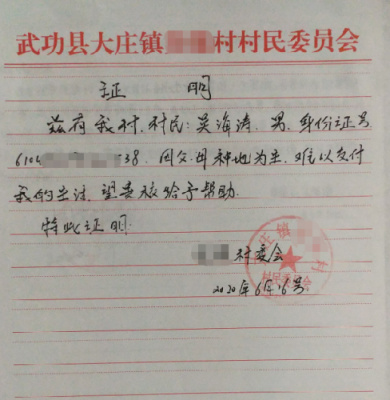 武功县大庄镇 村村民委员会
证 明
兹有我村村民:吴海涛,男,身份证号
610 38,因父母种地为主,难以支付
我的生活,望贵校给予帮助.
特此证明.
村委会
2020年6月16号.
庄镇 村
村民委员会